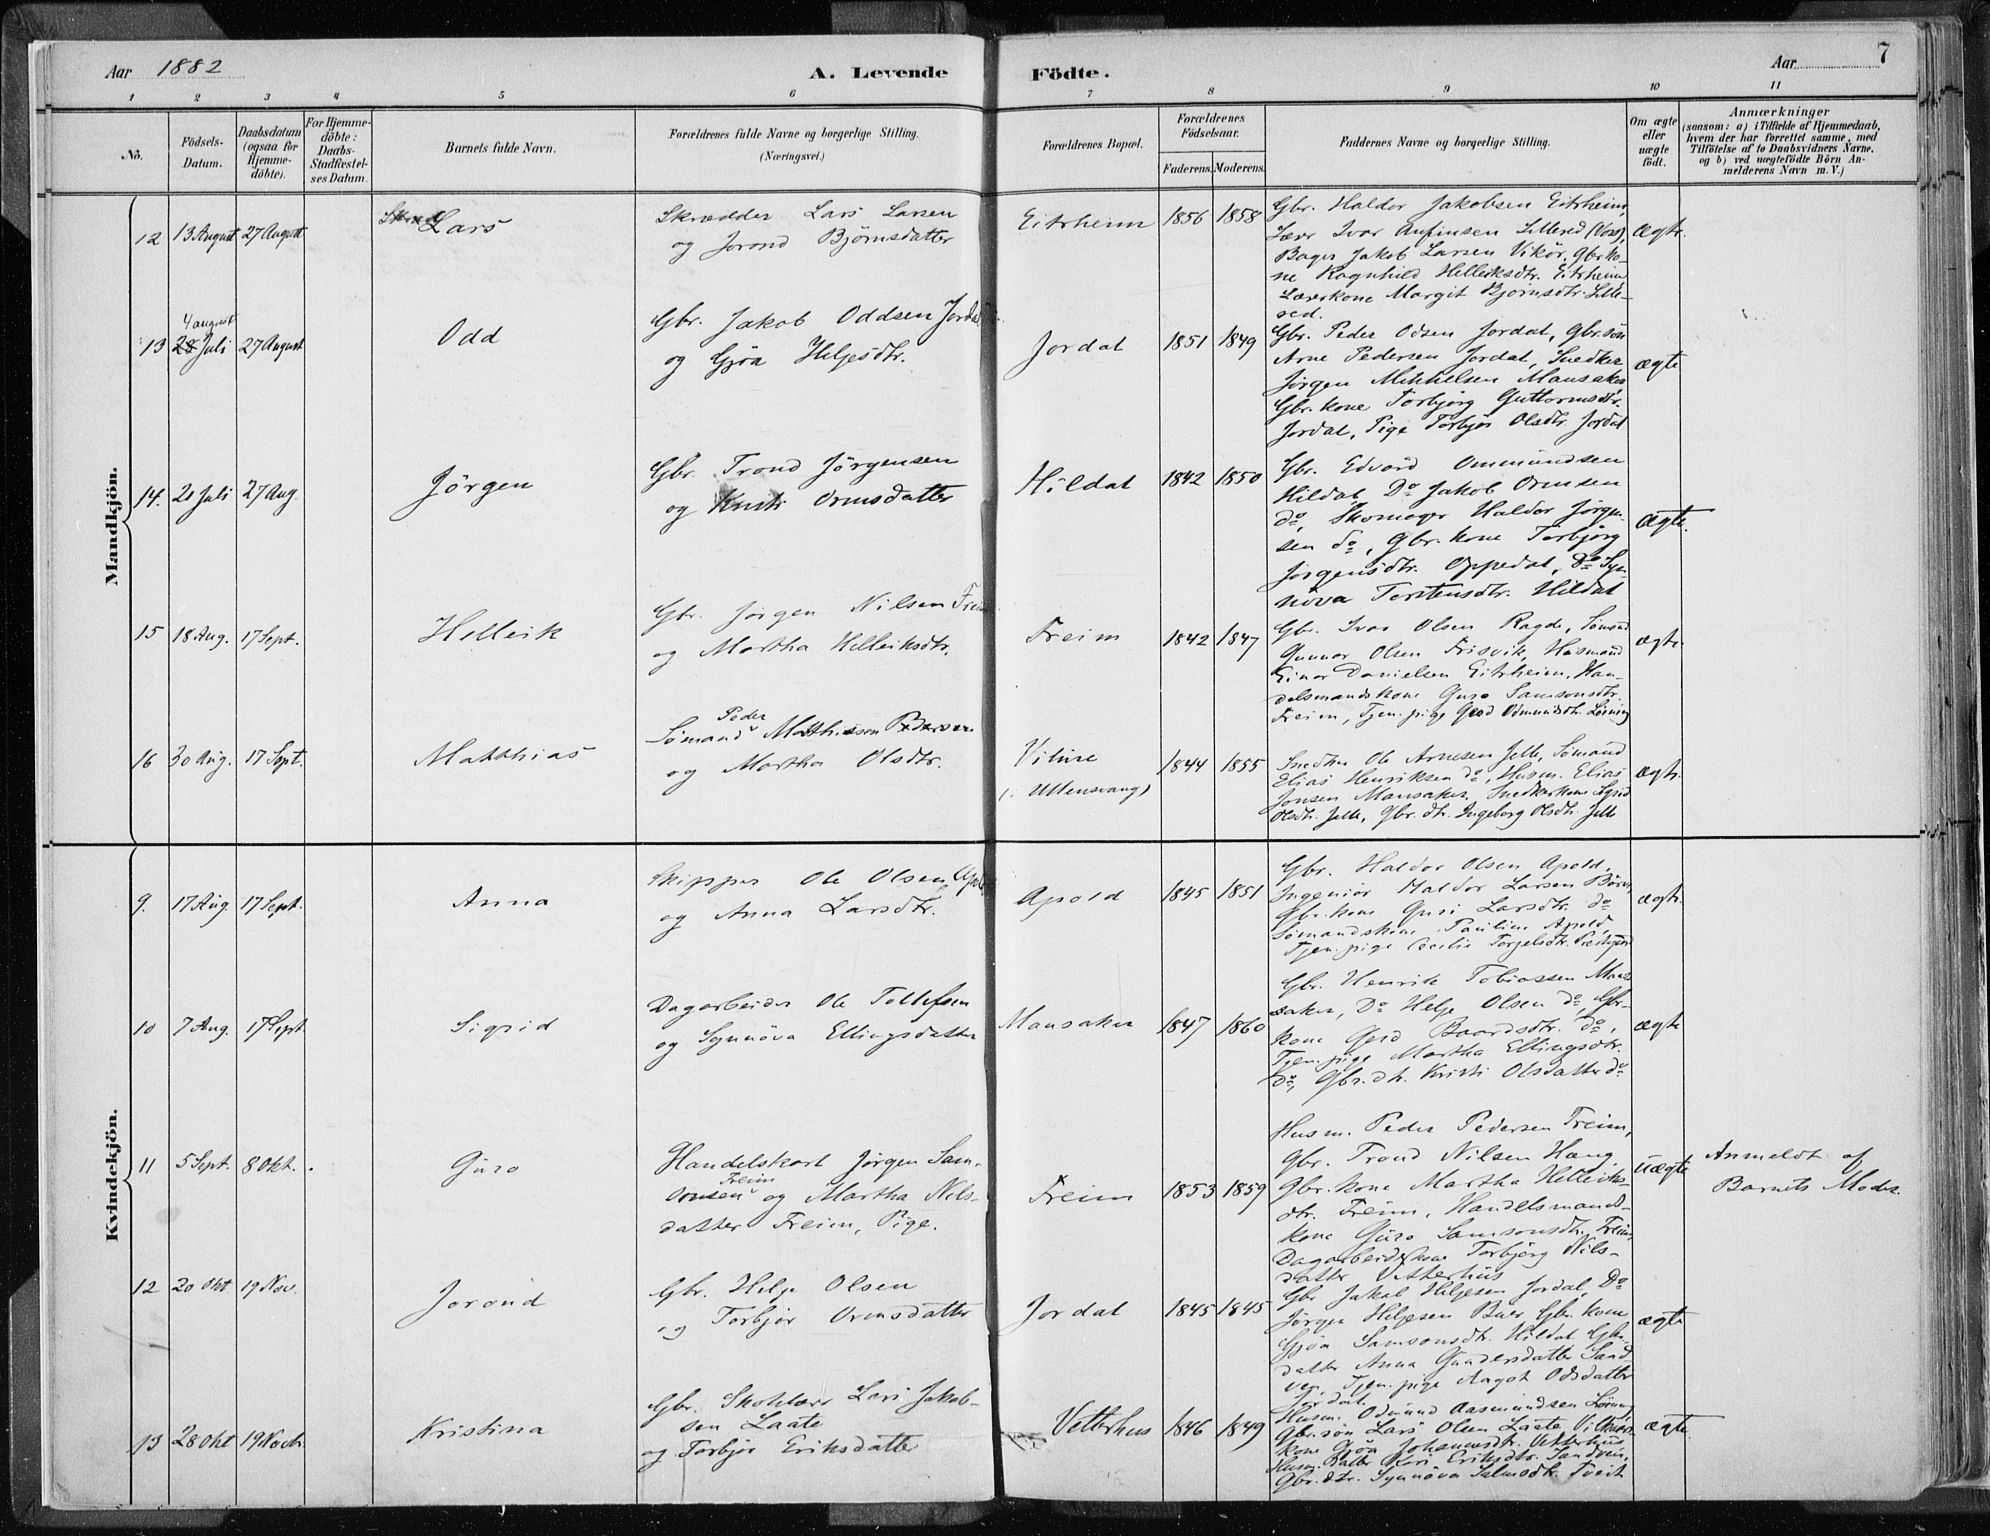 Aar 1882
A. Levende Födte.
Aar 7
1 2 3 4 5 6 7 8 9 10 11
No.
Födsels-Datum.
Daabsdatum (ogsaa for Hjemme-döbte).
For Hjemme-döbte: Daabs-Stadfæstel-ses Datum.
Barnets fulde Navn.
Forældrenes fulde Navne og borgerlige Stilling. (Næringsvei.)
Forældrenes Bopæl.
Forældrenes Födselsaar.
Faderens. Moderens.
Faddernes Navne og borgerlige Stilling.
Om ægte eller uægte födt.
Anmærkninger
(saasom: a) i Tilfælde af Hjemmedaab,
hvem der har forrettet samme, med
Tilföielse af to Daabsvidners Navne,
og b) ved uægtefödte Börn An-
melderens Navn m. V.)
Mandkjön.
12 13 August 27 August
Lars
Skrædder Lars Larsen
og Jorond Bjørnsdatter
Eitrheim 1856 1858
Gbr. Haldor Jakobsen Eitrheim,
Lærer Ivar Anfinsen Lillered (Voss),
Bager Jakob Larsen Vikör, Gbr.ko-
ne Ragnhild Helleiksdtr. Eitrheim
Lærerkone Margit Bjørnsdtr. Lille-
red.
ægte.
13 4 august
28 Juli 27 August
Odd
Gbr. Jakob Oddsen Jordal
og Gjöa Heljesdtr.
Jordal 1851 1849
Gbr. Peder Odsen Jordal, Gbr.søn
Arne Pedersen Jordal, Snedker
Jørgen Mikkelsen Mansaker
Gbr. kone Torbjørg Guttormsdtr.
Jordal, Pige Torbjør Olsdtr. Jordal
ægte
14. 21 Juli 27 Aug.
Jörgen
Gbr. Trond Jörgensen
og Kristi Ormsdatter
Hildal 1842 1850
Gbr. Edvard Ommundsen
Hildal, Do Jakob Ormsen
do, Skomager Haldor Jørgen-
sen do, Gbr. kone Torbjørg
Jørgensdtr. Oppedal, Do Syn-
növa Torstensdtr. Hildal
Ægte.
15 18 Aug. 17 Sept.
Helleik
Gbr. Jørgen Nilsen Freim
og Martha Helleiksdtr.
Freim 1842 1847
Gbr. Ivar Olsen Ragde, Sømand
Gunnar Olsen Frisvik, Husmand
Einar Danielsen Eitrheim, Han-
delsmandskone Guro Samsonsdtr.
Freim, Tjen. pige Gjerd Odmundsdtr. Løining
ægte.
16 30 Aug. 17 Sept.
Matthias
Peder
Sømand Matthissen Pedersen
og Martha Olsdtr.
Vilure
(i Ullensvang)
1844 1855
Snedker Ole Arnesen Jelle, Sømand
Elias Henriksen do, Husm. Elias
Jonsen Mansaker, Snedkerkone Sigrid
Olsdtr. Jelle, Gbr. dtr. Ingeborg Olsdtr. Jelle
ægte.
Kvindekjön.
9. 17 Aug 17 Sept.
Anna
Skipper Ole Olsen Apold
og Anna Larsdtr.
Apold 1845 1851
Gbr. Haldor Olsen Apold,
Ingeniør Haldor Larsen Børve,
Gbr. kone Guri Larsdtr. do
Sømandskone Pauline Apold,
Tjen. pige Cecilie Torgelsdtr.
ægte.
10 7 Aug. 17 Sept
Sigrid
Dagarbeider Ole Tollefsen
og Synnöva Ellingsdatter
Mansaker 1847 1860
Gbr. Henrik Tobiassen Man-
saker, Do Helje Olsen do, Gbr-
kone Gjerd Baardsdtr. do,
Tjen. pige Martha Ellingsdtr.
do, Gbr. dtr. Kristi Olsdatter do
ægte
11 5 Sept. 8 Okt.
Guro
Handelskarl Jørgen Sam-
Freim
sonsen og Martha Nils-
datter Freim, Pige.
Freim 1853 1859
Husm. Peder Pedersen Freim,
Gbr. Trond Nilsen Haug
Gbr. kone Martha Helleiks-
dtr. Freim, Handelsmands-
kone Guro Samsonsdtr. Freim,
Dagarbeiderkone Torbjørg Nils-
datter Vetterhus
uægte
Anmeldt af
Barnets Moder.
12 20 Okt 19 Nov.
Jorond
Gbr. Helje Olsen
og Torbjør Ormsdatter
Jordal 1845 1845
Gbr. Jakob Heljesen Jordal, Do
Jørgen Heljesen Buer Gbr. kone
Gjöa Samsonsdtr. Hildal Gbr.
datter Anna Gundersdatter Sand
ven, Tjen. pige Aagot Odsdatter
Jordal.
ægte
13 28 Okt 19 Novbr.
Kristina
Gbr. Skolelærer Lars Jakob-
sen Laate
og Torbjør Eriksdatter
Vetterhus 1846 1849
Husm. Odmund Aasmundsen Løining
Gbr. søn Lars Olsen Laate
kone Gjöa Johannesdtr. Vetterhus
Kari Eriksdtr. Sandven,
Gbr. dtr. Synnöva Tveit
ægte.